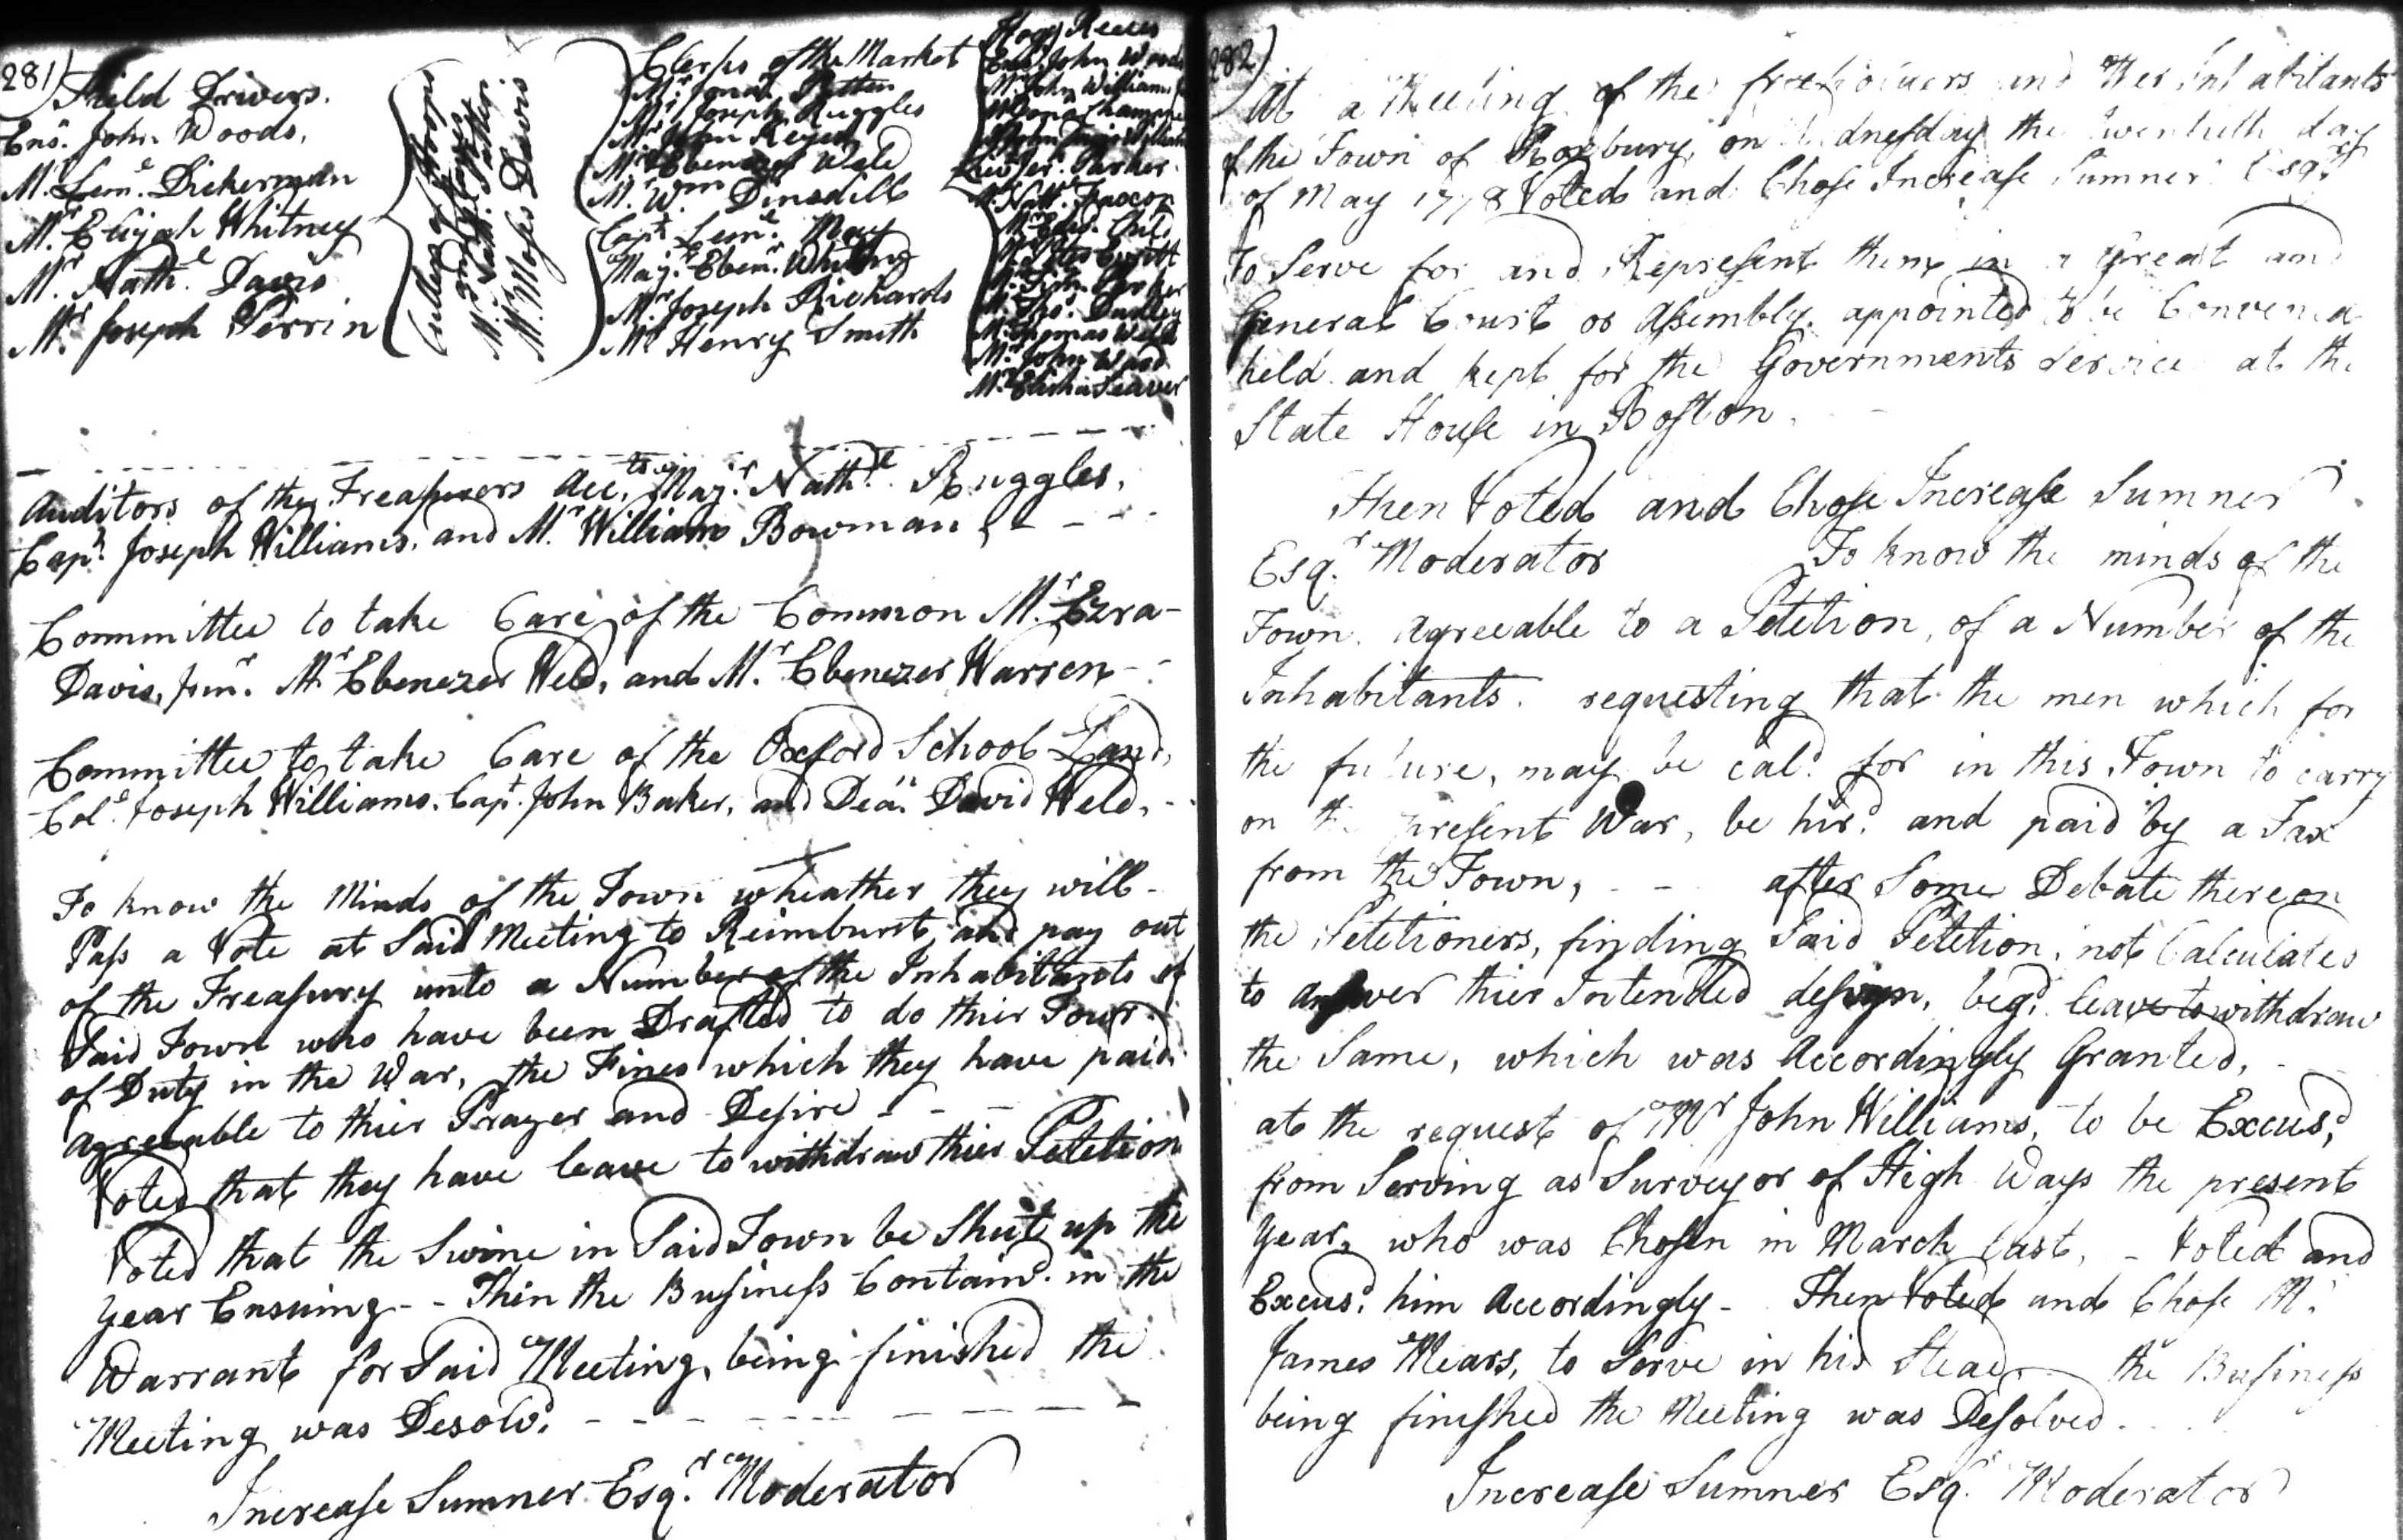 281)
Field Drivers.
Ens. John Woods,
Mr. Leml. Dickerman
Mr. Elijah Whitney
Mr. Nathl. Davis
Mr. Joseph Perrin
Cullers of Hoops
Mr. Moses Davis
Clerks of the Market
Mr. Jonan. Patten
Mr. Joseph Ruggles
Mr. John
Mr. Ebenezer Weld
Mr. Wm. Dinsdill
Capt. Leml. May
Maj. Ebenr. Whiting
Mr. Joseph Richards
Mr. Henry Smith
Hogg Reeves
Ens. John Woods
Mr. John Williams
Parker
Mr. Nath. Faxcon
Mr. Edwd. Child
Mr. Thos. Dudley
Mr. Thomas Weld
Mr. John Ward
Mr. Elisha Seaver
Auditors of they Treasurers Acc.ts Majr. Nathl. Ruggles,
Capt. Joseph Williams, and Mr. William Bowman
Committee to take Care of the Common Mr. Ezra
Davis, junr. Mr. Ebenezer Weld, and Mr. Ebenezer Warren
Committee to take Care of the Oxford School Land,
Coll. Joseph Williams. Capt. John Baker, and Dean. David Weld,
To know the Minds of the Town wheather they will
Pass a Vote at Said Meeting to Reimburst and pay out
of the Treasury unto a Number of the Inhabitants of
Said Town who have been Drafted to do thier Tour
of Duty in the War, the Fines which they have paid.
agreeable to thier Prayer and Desire
Voted that they have leave to withdraw thier Petetion
Voted that the Swine in Said Town be Shut up the
year Ensuing - - Then the Business Containd. in the
Warrant for Said Meeting, being finished the
Meeting was Desolvd.
Increase Sumner Esqr. Moderator
282)
At a Meeting of the freeholders and Inhabitants
of the Town of Roxbury, on Wednesday the twentieth day
of May 1778 Voted and Chose Increase Sumner Esqr.
To Serve for and Represent them in a Great and
General Court or Assembly. appointed to be Convened
held and kept for the Governments Service at the
State House in Boston.
Then Voted and Chose Increase Sumner
Esqr. Moderator To know the minds of the
Town. agreeable to a Petetion, of a Number of the
Inhabitants. requesting that the men which for
the future, may be cald. for in this Town to carry
on the present War, be hird. and paid by a Tax
from the Town, - - after Some Debate thereon
the Petetioners, finding Said Petetion, not Calculated
to answer thier Intended design, begd. leave to withdraw
the Same, which was Accordingly Granted,
at the request of Mr John Williams, to be Excusd,
from Serving as Surveyor of High Ways the present
year, who was Chosen in March last, - Voted and
Excusd. him Accordingly - Then Voted and Chose Mr.
James Mears, to Serve in his Stead, the Business
being finished the Meeting was Desolved.
Increase Sumner Esqr. Moderator